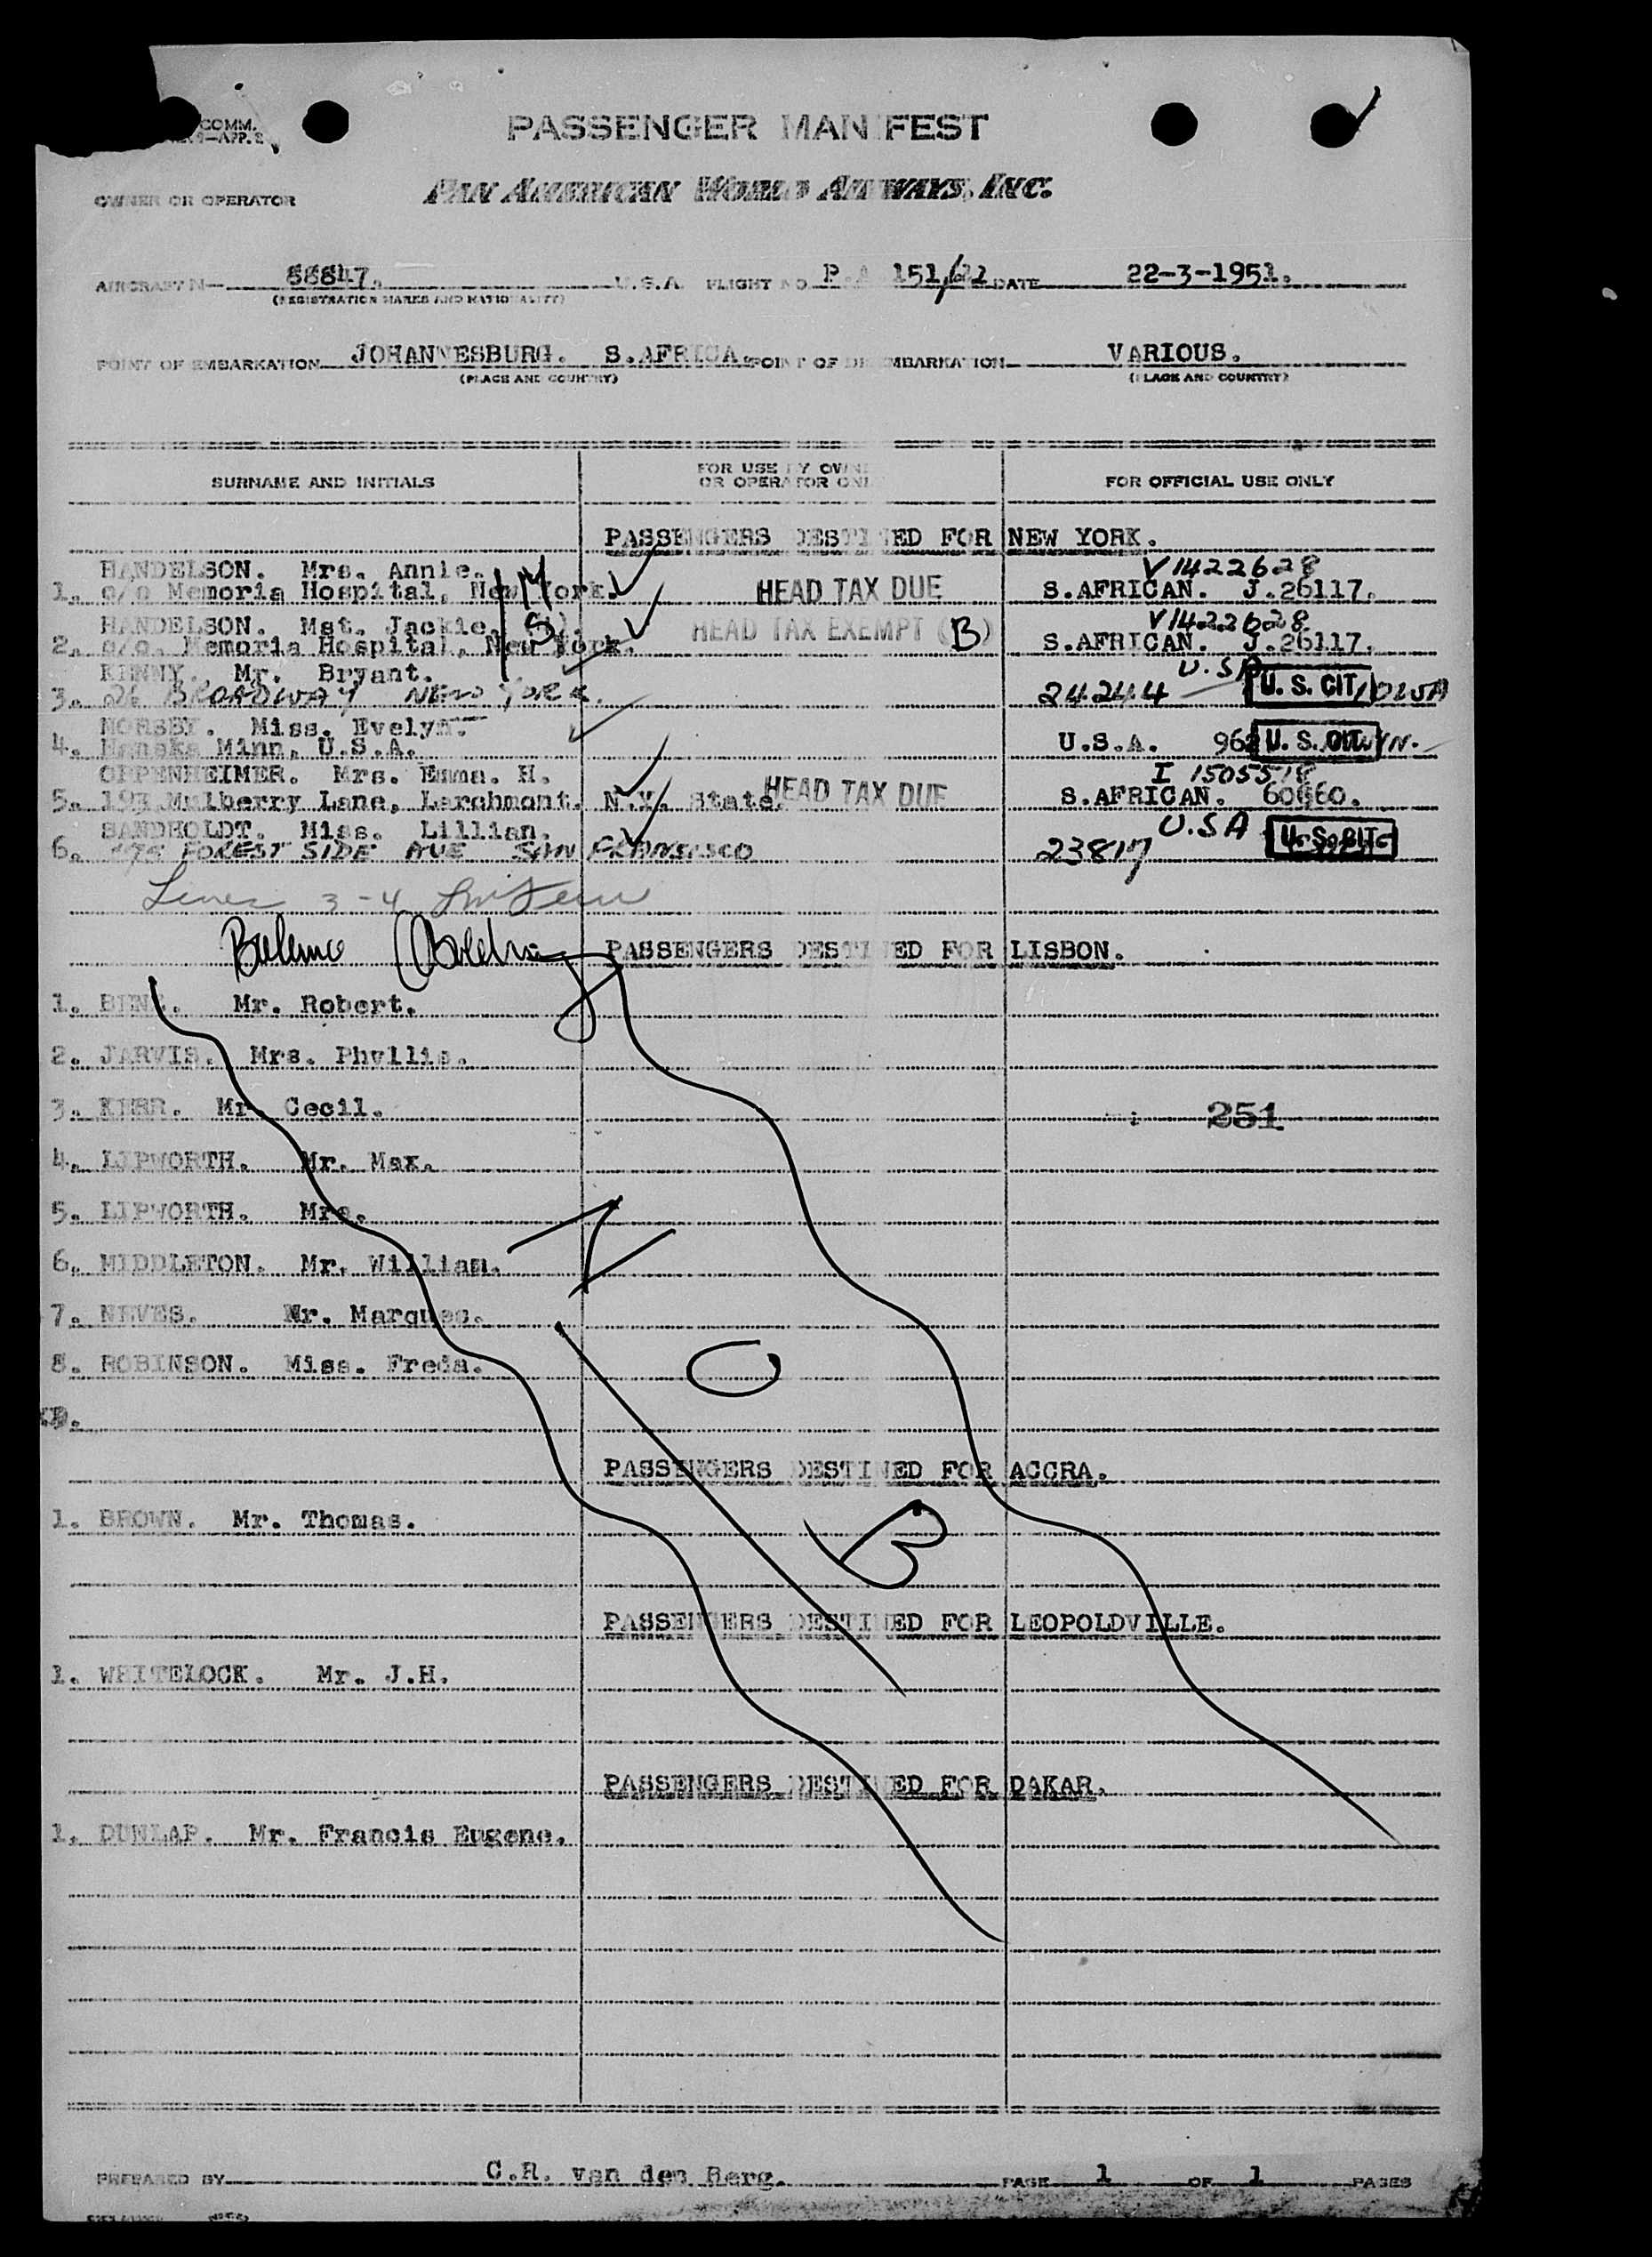 COMM.
—APP. 2
PASSENGER MANIFEST
OWNER OR OPERATOR PAN AMERICAN WORLD AIRWAYS, INC.
AIRCRAFT N— 88847. U.S.A. FLIGHT NO P.A 151/ DATE 22-3-1951.
(REGISTRATION MARKS AND NATIONALITY)
POINT OF EMBARKATION JOHANNESBURG. S.AFRICA. POINT OF DISEMBARKATION VARIOUS.
(PLACE AND COUNTRY) (PLACE AND COUNTRY)
SURNAME AND INITIALS FOR USE BY OWNER OR OPERATOR ONLY FOR OFFICIAL USE ONLY
PASSENGERS DESTINED FOR NEW YORK.
HANDELSON. Mrs. Annie. M V1422628
1. c/o Memoria Hospital, New York. HEAD TAX DUE S.AFRICAN. J.26117.
HANDELSON. Mst. Jackie. S V1422628
2. c/o. Memoria Hospital, New York. HEAD TAX EXEMPT (B) S.AFRICAN. J.26117.
KENNY. Mr. Bryant. U.SA
3. 26 BROADWAY NEW YORK. 24244 U. S. CIT IOWA
NORSBY. Miss. Evelyn.
4. Minn, U.S.A. U.S.A. 962 U. S. CIT
OPPENHEIMER. Mrs. Emma. H. I 1505518
5. 193 Mulberry Lane, Larchmont. N.Y. State. HEAD TAX DUE S.AFRICAN. 60660.
SANDHOLDT. Miss. Lillian. U.SA
6. FOREST SIDE AVE SAN FRANSISCO 23817 U. S. CIT
Lines 3-4
PASSENGERS DESTINED FOR LISBON.
1. Mr. Robert.
2. JARVIS. Mrs. Phyllis.
3. KERR. Mr. Cecil. 251
4. LIPWORTH. Mr. Max.
5. LIPWORTH. Mrs.
6. MIDDLETON. Mr. William.
7. NEVES. Mr. Marques.
8. ROBINSON. Miss. Freda.
9.
N O B
PASSENGERS DESTINED FOR ACCRA.
1. BROWN. Mr. Thomas.
PASSENGERS DESTINED FOR LEOPOLDVILLE.
1. WHITELOCK. Mr. J.H.
PASSENGERS DESTINED FOR DAKAR.
1. DUNLAP. Mr. Francis Eugene.
PREPARED BY C.R. van den Berg. PAGE 1 OF 1 PAGES